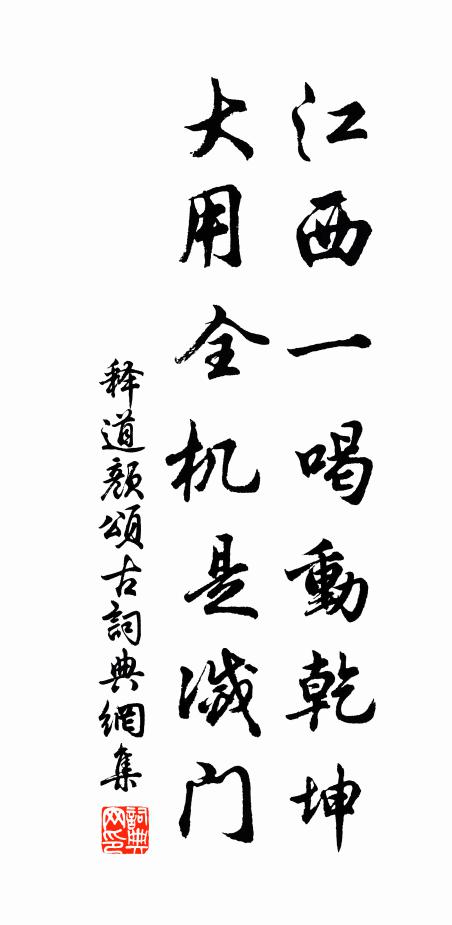 江西一喝動乾坤
大用全机是滅门
释道颜頌古詞典網集
詞典网印